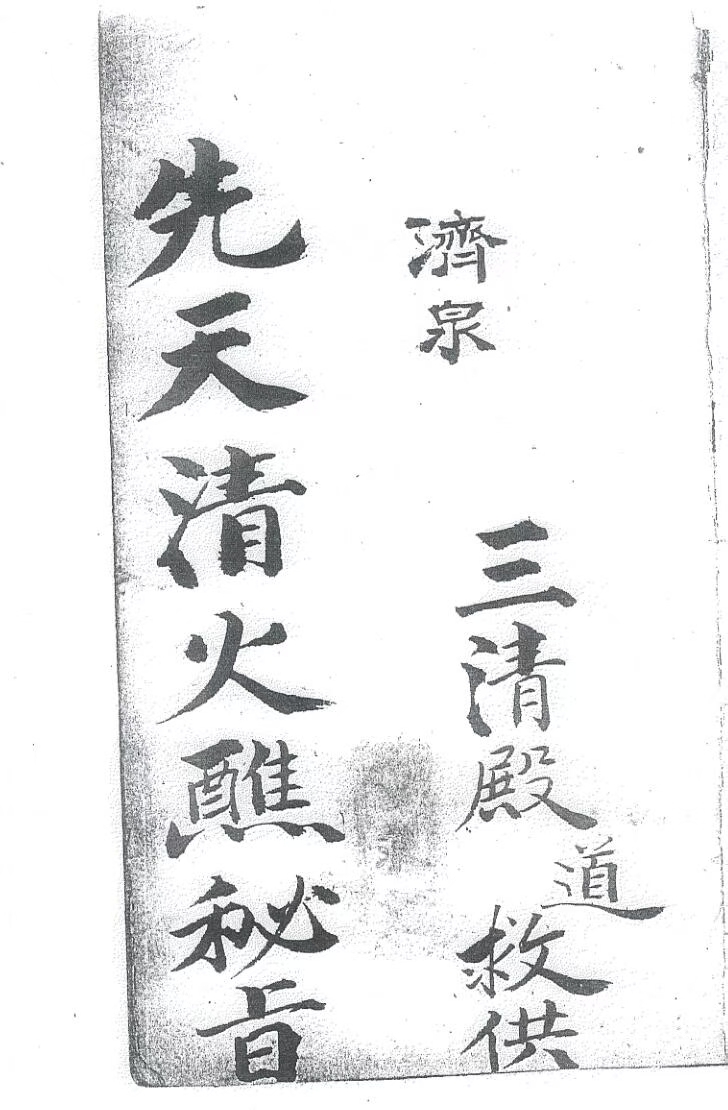 三清殿道救供
濟泉
先天清火醮秘旨